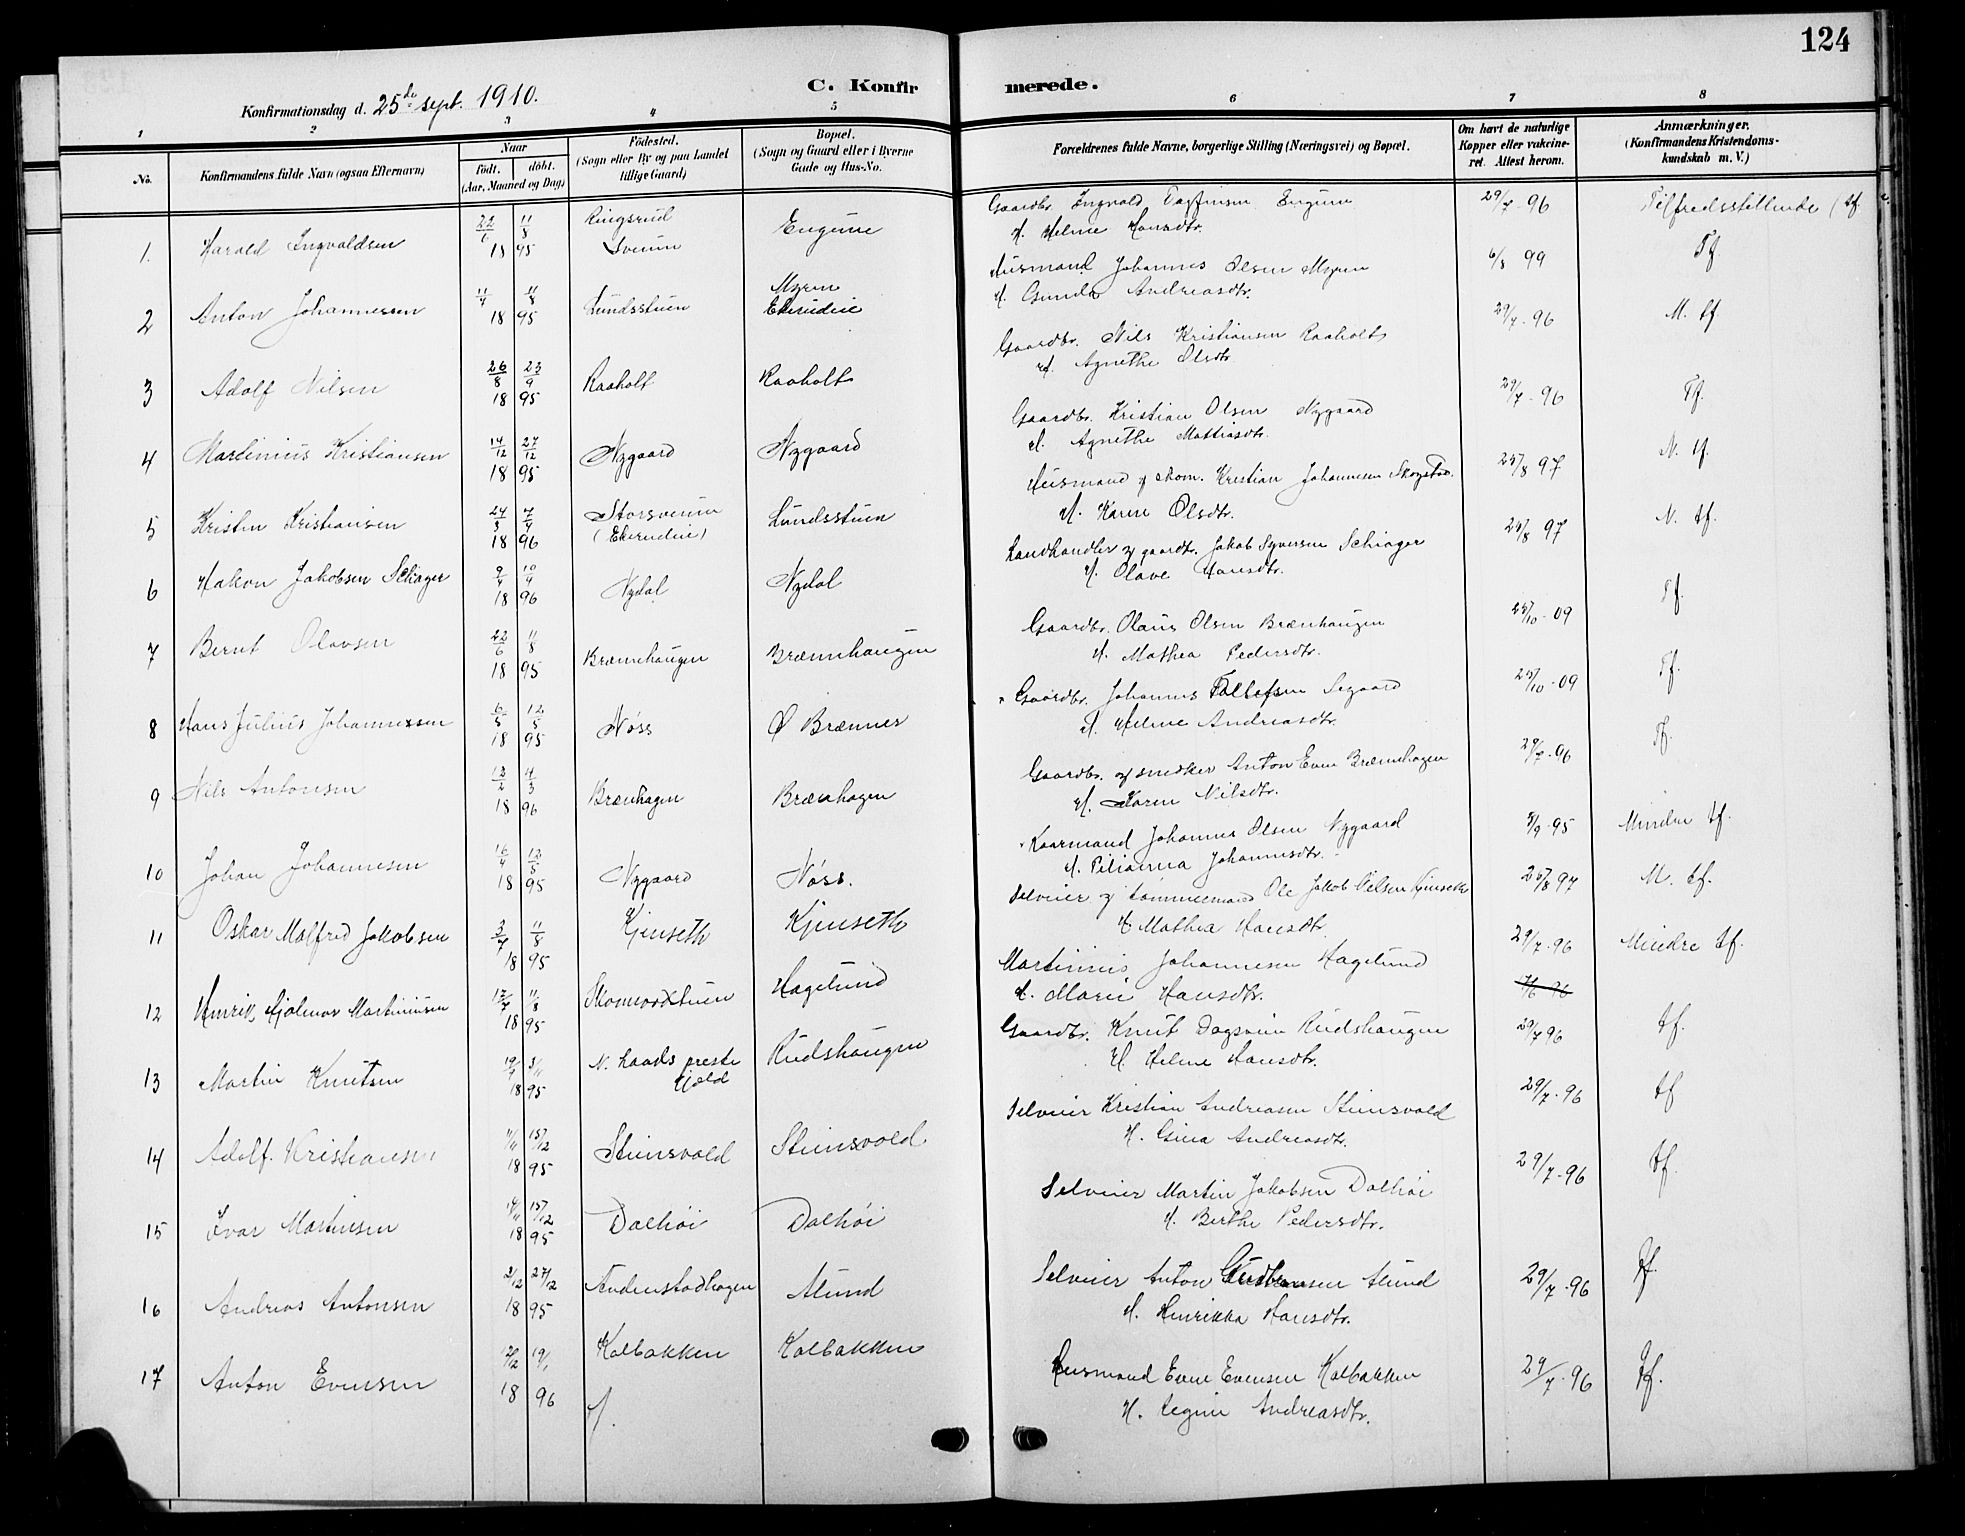 124
Konfirmationsdag d. 25de sept. 1910.
C. Konfirmerede.
1 2 3 4 5 6 7 8
No. Konfirmandens fulde Navn (ogsaa Efternavn) Naar født. døbt. (Aar, Maaned og Dag) Fødested. (Sogn eller By og paa Landet tillige Gaard) Bopæl. (Sogn og Gaard eller i Byerne Gade og Hus-No. Forældrenes fulde Navne, borgerlige Stilling (Næringsvei) og Bopæl. Om havt de naturlige Kopper eller vakcineret. Attest herom. Anmærkninger. (Konfirmandens Kristendomskundskab m. V.)
1. Harald Ingvaldsen 22/6 11/8 1895 Ringsrud Sveum Engune Gaardbr. Ingvald Dagfinsen Engune
H. Helene Hansdtr. 29/7-96 Tilfredsstillende (tf.
2 Anton Johannessen 11/4 11/8 1895 Lundsstuen Myren Ekerudeie Husmand Johannes Olsen Myren
H. Gunda Andreasdtr. 6/8 99 Tf
3 Adolf Nilsen 26/8 23/9 1895 Raaholt Raaholt Gaardbr. Nils Kristiansen Raaholt
H. Agnethe Olsdtr. 29/7-96 M. tf
4 Martinius Kristiansen 14/12 27/12 1895 Nygaard Nygaard Gaardbr. Kristian Olsen Nygaard
H. Agnethe Mattiasdtr. 29/7-96 Tf.
5 Kristen Kristiansen 24/3 7/4 1896 Storsveum (Ekerudeie) Lundsstuen Husmand og skom. Kristian Johannesen
H. Karen Olsdtr. 25/8 97 N. tf.
6 Hakon Jakobsen Schiager 9/4 10/4 1896 Nydal Nydal Landhandler og gaardbr. Jakob Syversen Schiager
H. Olave Hansdtr. 25/8 97 N. tf.
7 Bernt Olavsen 22/6 11/8 1895 Brænnhaugen Brænnhaugen Gaardbr. Olaus Olsen Brænhaugen
H. Mathea Pedersdtr. 25/10-09 Tf.
8 Hans Julius Johannessen 6/5 12/5 1895 Nøss Ø Brænner Gaardbr. Johannes Tollefsen Segaard
H. Helene Andreasdtr. 25/10-09 Tf.
9 Nils Antonsen 12/2 4/3 1896 Brænhagen Brænhagen Gaardbr. og snedker Anton Even Brænnhagen
H. Karen Nilsdtr. 29/7-96 Tf.
10 Johan Johannesen 16/4 12/5 1895 Nygaard Nøss. Kaarmand Johannes Olsen Nygaard
H. Pilianna Johannesdtr. 5/9-95 Mindre tf.
11 Oskar Malfred Jakobsen 3/7 11/8 1895 Kjenseth Kjenseth Selveier og tømmermand Ole Jakob Nilsen Kjenseth
H. Mathea Hansdtr. 25/8 97 M. tf.
12 Henrik Hjalmar Martiniusen 17/7 11/8 1895 Hagelund Martinius Johannesen Hagelund
H. Marie Hansdtr. 29/7-96 Mindre tf.
13 Martin Knutsen 19/9 3/11 1895 N. Lands præstegjæld Rudshaugen Gaardbr. Knut Dagsvein Rudshaugen
H. Helene Hansdtr. 29/7 96 tf.
14 Adolf Kristiansen 11/11 15/12 1895 Stensvold Stensvold Selveier Kristian Andreasen Stensvold
H. Gina Andreasdtr. 29/7-96 tf
15 Ivar Martinsen 15/12 1895 Dalhøi Dalhøi Selveier Martin Jakobsen Dalhøi
H. Berthe Pedersdtr. 29/7-96 tf.
16 Andreas Antonsen 2/12 27/12 1895 Fredenstadhagen Alund Selveier Anton Gudbransen Alund
H. Henrikka Hansdtr. 29/7-96 Tf.
17 Anton Evensen 19/1 1896 Kalbakken Kalbakken Husmand Even Evensen Kalbakken
H. Regine Andreasdtr. 29/7-96 Tf.